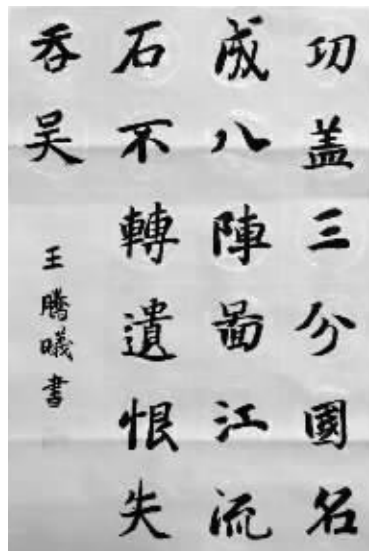 功盖三分國名
成八陣啚江流
石不轉遺恨失
吞吴
王騰曦書